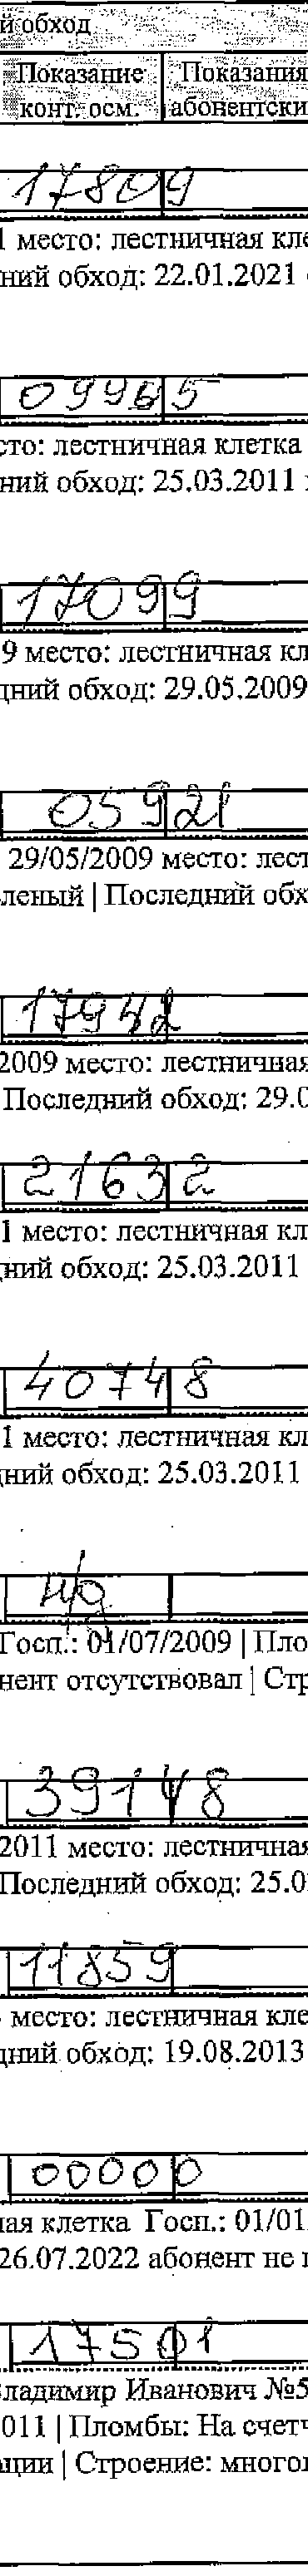 й обход
Показание Показания
конт. осм. абонентски
17809
1 место: лестничная кле
ний обход: 22.01.2021
09965
сто: лестничная клетка
ний обход: 25.03.2011
17099
9 место: лестничная кл
дний обход: 29.05.2009
05921
29/05/2009 место: лест
леный | Последний обх
17942
2009 место: лестничная
Последний обход: 29.0
21632
1 место: лестничная кл
дний обход: 25.03.2011
40748
1 место: лестничная кл
дний обход: 25.03.2011
н/д
Госп.: 01/07/2009 | Пло
нент отсутствовал | Стр
39148
2011 место: лестничная
Последний обход: 25.0
11859
место: лестничная кле
дний обход: 19.08.2013
00000
ная клетка Госп.: 01/01
26.07.2022 абонент не
17501
Владимир Иванович №5
011 | Пломбы: На счетч
ции | Строение: много